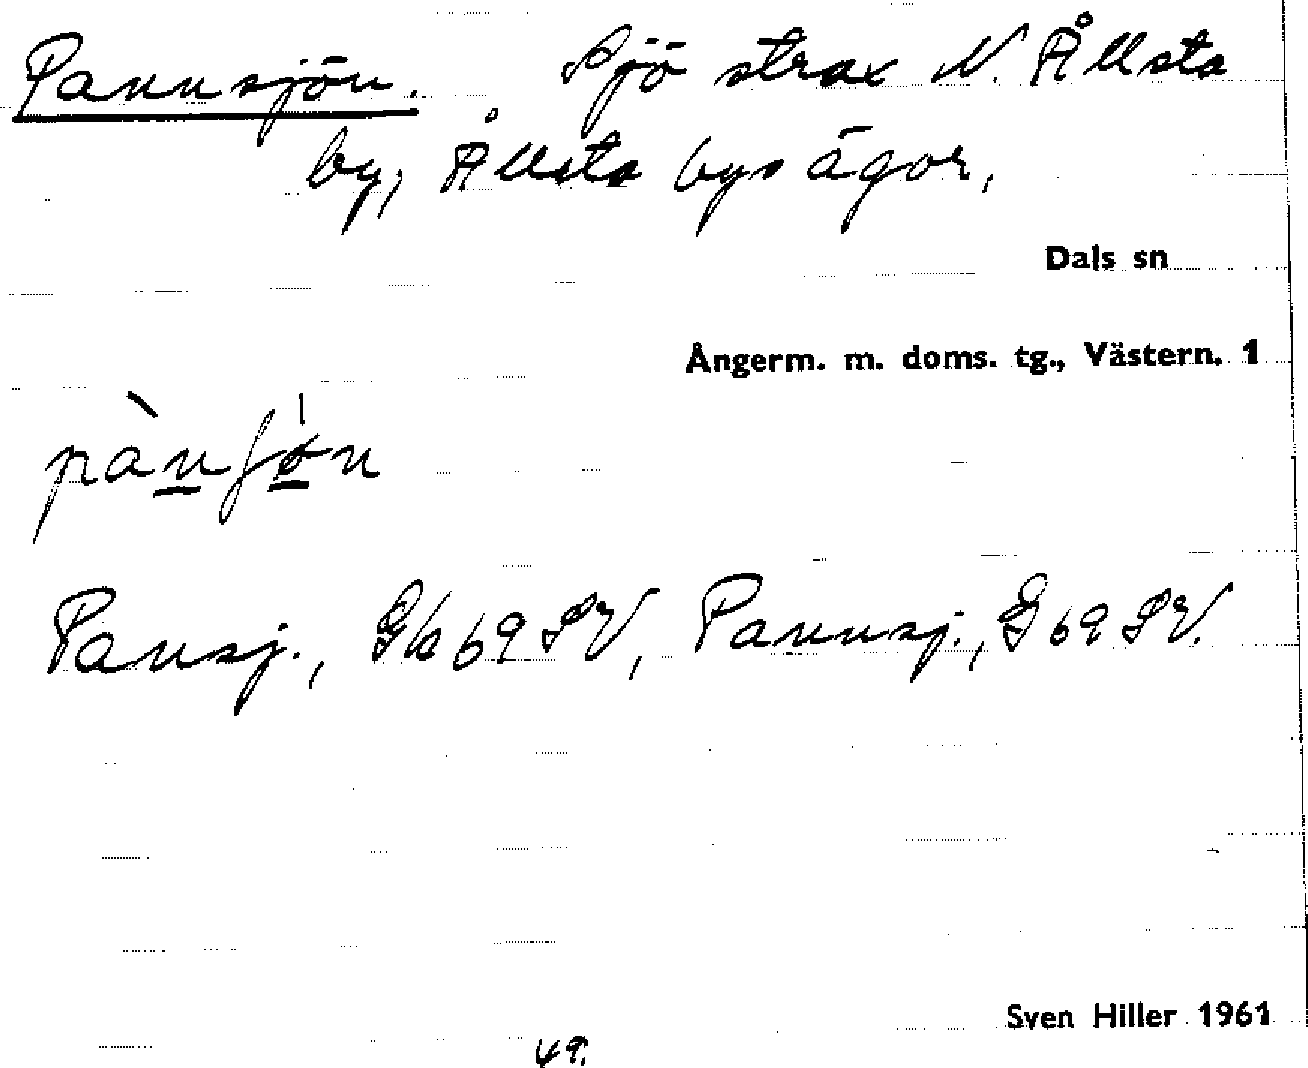 Pannsjön. Sjö strax N. Ållsta
by, Ållsta bys ägor,
Dals sn
Ångerm. m. doms. tg., Västern. 1
pànʃø̀n
Pansj., Gk 69 SV, Pannsj., G 69 SV.
Sven Hiller 1961
49.